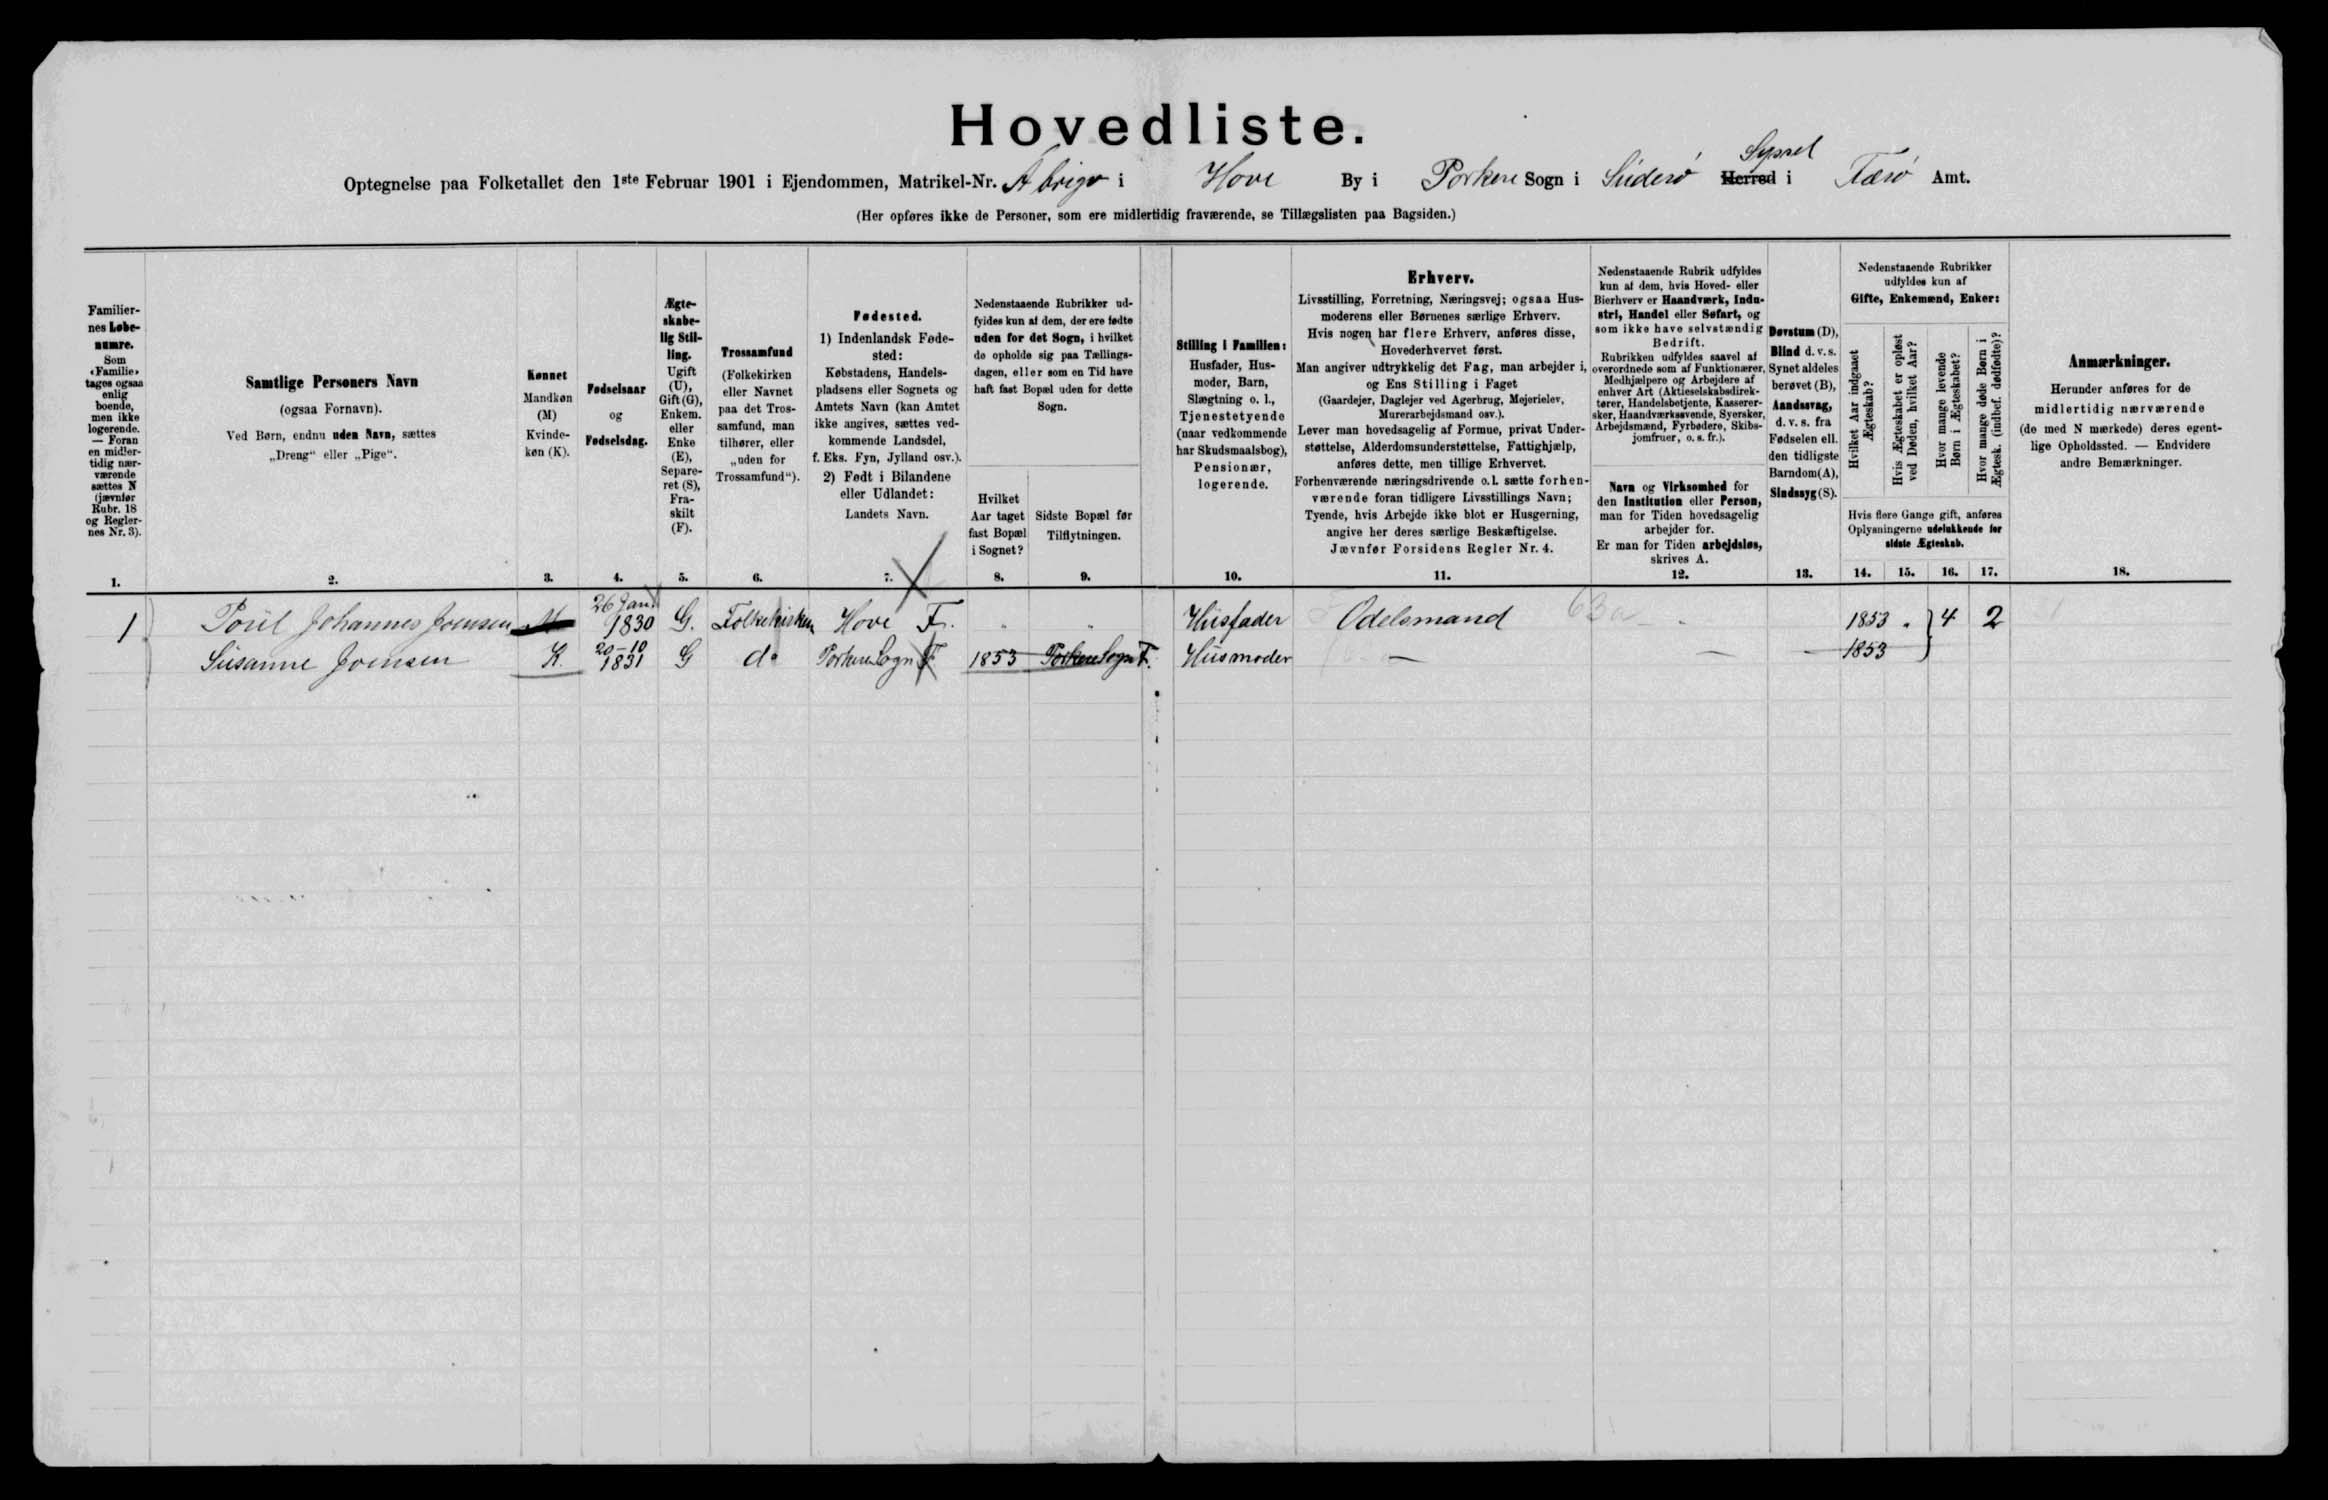 Hovedliste.
Optegnelse paa Folketallet den 1ste Februar 1901 i Ejendommen, Matrikel-Nr. Abrigo i Hove By i Porkere Sogn i Suderø Herred Syssel i Færø Amt.
(Her opføres ikke de Personer, som ere midlertidig fraværende, se Tillægslisten paa Bagsiden.)
Familier-
nes Løbe-
numre.
Som
«Familie»
tages ogsaa
enlig
boende,
men ikke
logerende.
— Foran
en midler-
tidig nær-
værende
sættes N
(jævnfør
Rubr. 18
og Regler-
nes Nr. 3).
1.
Samtlige Personers Navn
(ogsaa Fornavn).
Ved Børn, endnu uden Navn, sættes
„Dreng“ eller „Pige“.
2.
Kønnet
Mandkøn
(M)
Kvinde-
køn (K).
3.
Fødselsaar
og
Fødselsdag.
4.
Ægte-
skabe-
lig Stil-
ling.
Ugift
(U),
Gift (G),
Enkem.
eller
Enke
(E),
Separe-
ret (S),
Fra-
skilt
(F).
5.
Trossamfund
(Folkekirken
eller Navnet
paa det Tros-
samfund, man
tilhører, eller
„uden for
Trossamfund“).
6.
Fødested.
1) Indenlandsk Føde-
sted:
Købstadens, Handels-
pladsens eller Sognets og
Amtets Navn (kan Amtet
ikke angives, sættes ved-
kommende Landsdel,
f. Eks. Fyn, Jylland osv.).
2) Født i Bilandene
eller Udlandet:
Landets Navn.
7.
Nedenstaaende Rubrikker ud-
fyldes kun af dem, der ere fødte
uden for det Sogn, i hvilket
de opholde sig paa Tællings-
dagen, eller som en Tid have
haft fast Bopæl uden for dette
Sogn.
Hvilket
Aar taget
fast Bopæl
i Sognet?
8.
Sidste Bopæl før
Tilflytningen.
9.
Stilling i Familien:
Husfader, Hus-
moder, Barn,
Slægtning o. l.,
Tjenestetyende
(naar vedkommende
har Skudsmaalsbog),
Pensionær,
logerende.
10.
Erhverv.
Livsstilling, Forretning, Næringsvej; ogsaa Hus-
moderens eller Børnenes særlige Erhverv.
Hvis nogen har flere Erhverv, anføres disse,
Hovederhvervet først.
Man angiver udtrykkelig det Fag, man arbejder i,
og Ens Stilling i Faget
(Gaardejer, Daglejer ved Agerbrug, Mejerielev,
Murerarbejdsmand osv.).
Lever man hovedsagelig af Formue, privat Under-
støttelse, Alderdomsunderstøttelse, Fattighjælp,
anføres dette, men tillige Erhvervet.
Forhenværende næringsdrivende o. l. sætte forhen-
værende foran tidligere Livsstillings Navn;
Tyende, hvis Arbejde ikke blot er Husgerning,
angive her deres særlige Beskæftigelse.
Jævnfør Forsidens Regler Nr. 4.
11.
Nedenstaaende Rubrik udfyldes
kun af dem, hvis Hoved- eller
Bierhverv er Haandværk, Indu-
stri, Handel eller Søfart, og
som ikke have selvstændig
Bedrift.
Rubrikken udfyldes saavel af
overordnede som af Funktionærer,
Medhjælpere og Arbejdere af
enhver Art (Aktieselskabsdirek-
tører, Handelsbetjente, Kasserer-
sker, Haandværkssvende, Syersker,
Arbejdsmænd, Fyrbødere, Skibs-
jomfruer, o. s. fr.).
Navn og Virksomhed for
den Institution eller Person,
man for Tiden hovedsagelig
arbejder for.
Er man for Tiden arbejdsløs,
skrives A.
12.
Døvstum (D),
Blind d. v. s.
Synet aldeles
berøvet (B),
Aandssvag,
d. v. s. fra
Fødselen ell.
den tidligste
Barndom (A),
Sindssyg (S).
13.
Nedenstaaende Rubrikker
udfyldes kun af
Gifte, Enkemænd, Enker:
Hvilket Aar indgaaet
Ægteskab?
Hvis Ægteskabet er opløst
ved Døden, hvilket Aar?
Hvor mange levende
Børn i Ægteskabet?
Hvor mange døde Børn i
Ægtesk. (indbef. dødfødte)?
Hvis flere Gange gift, anføres
Oplysningerne udelukkende for
sidste Ægteskab.
14. 15. 16. 17.
Anmærkninger.
Herunder anføres for de
midlertidig nærværende
(de med N mærkede) deres egent-
lige Opholdssted. — Endvidere
andre Bemærkninger.
18.
1 Poül Johannes Joensen M 26 Jan. 1830 G. Folkekirken Hove F. " " Husfader Odelsmand 63a - 1853 " 4 2
Süsanne Joensen K. 20-10 1831 G do Porkere Sogn F. 1853 Porkere Sogn F. Husmoder — — - 1853